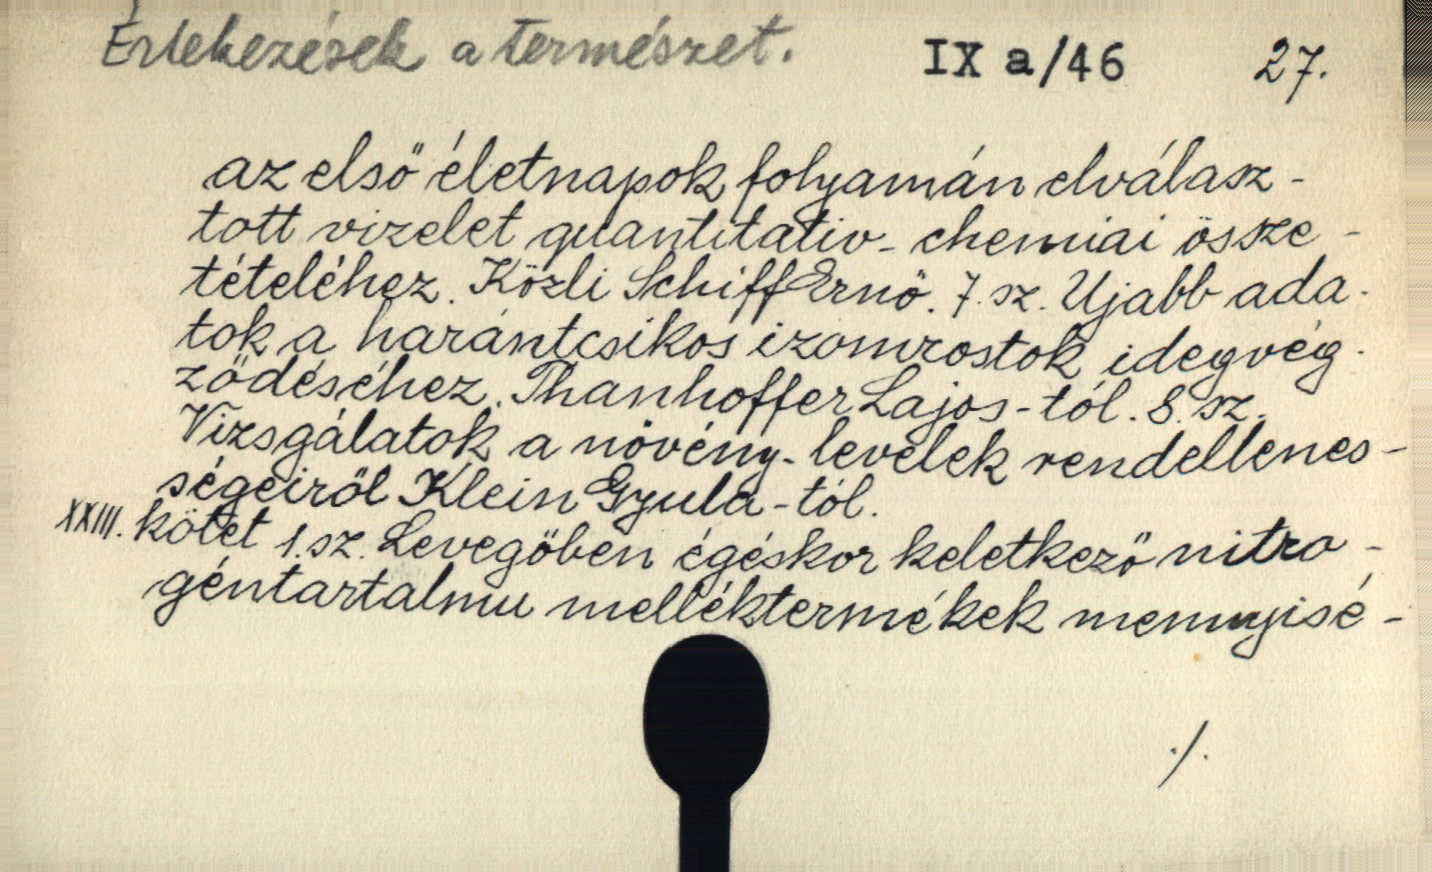 Értekezések a természet. IX a/46 27.
az első életnapok folyamán elválasz-
tott vizelet quantitativ-chemiai össze-
tételéhez. Közli Schiff Ernő. 7. sz. Ujabb ada-
tok a harántcsikos izomrostok idegvég-
ződéséhez. Thanhoffer Lajos-tól. 8. sz.
Vizsgálatok a növény-levelek rendellenes-
ségeiről Klein Gyula-tól.
XXIII. kötet 1. sz. Levegőben égéskor keletkező nitro-
géntartalmu melléktermékek mennyisé-
./.